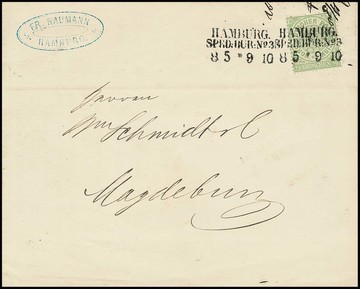 FR. NAUMANN
HAMBURG.
HAMBURG. HAMBURG.
SP.ED.BUR.No3 SP.ED.BUR.No3
8 5 * 9 10 8 5 * 9 10
Herren
Wm Schmidt & C
Magdeburg